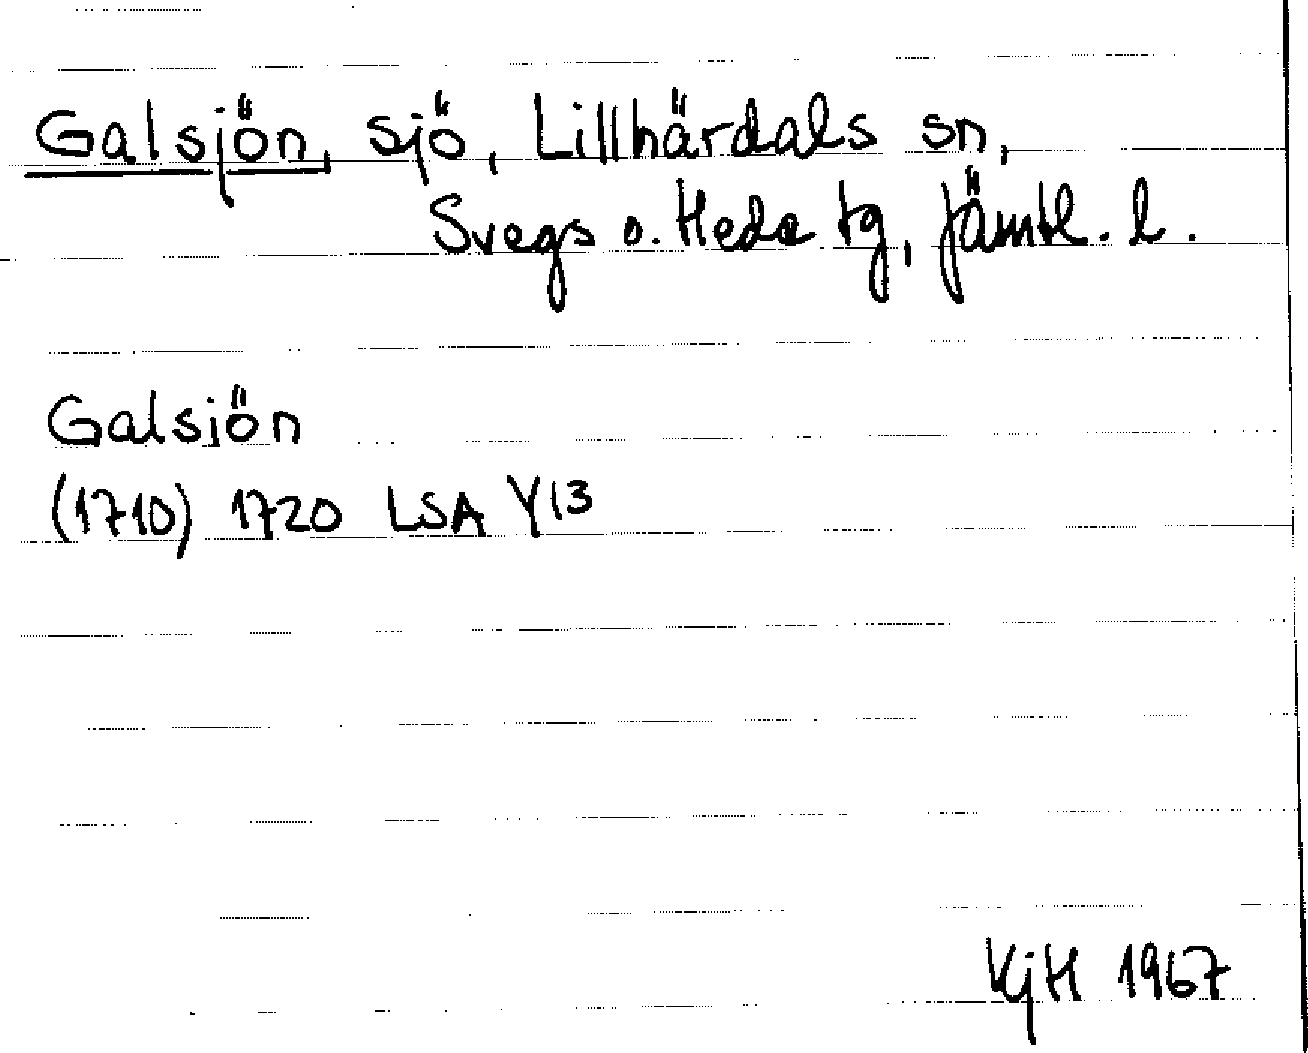 Galsjön, sjö, Lillhärdals sn,
Svegs o. Heda tg, Jämtl. l.
Galsiön
(1710) 1720 LSA Y13
KjH 1967